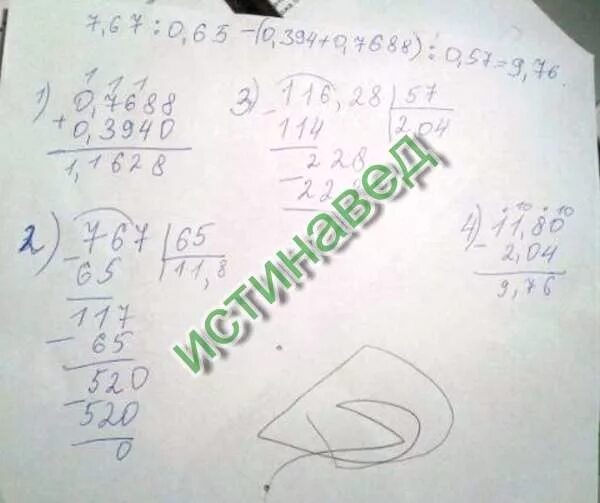 7,67 : 0,65 - (0,394 + 0,7688) : 0,57 = 9,76.
1) 1 1 1
0,7688
+ 0,3940
1,1628
2) 767 | 65
- 65 | 11,8
117
- 65
520
- 520
0
3) 116,28 | 57
- 114 | 2,04
228
- 22
4) 10 10
11,80
- 2,04
9,76
истинавед